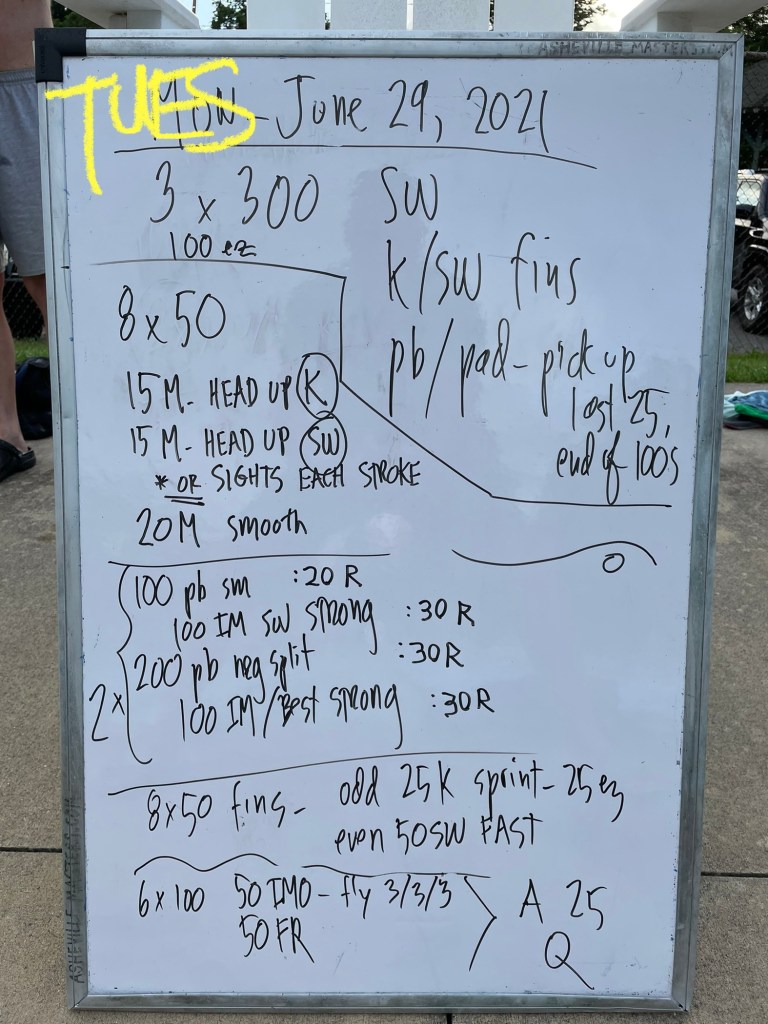 ASHEVILLE MASTERS.COM
TUES
MON - June 29, 2021
3 x 300 SW
100 ez
K/SW fins
pb/pad - pick up
last 25,
end of 100s
8 x 50
15 M - HEAD UP K
15 M - HEAD UP SW
* OR SIGHTS EACH STROKE
20M smooth
2x
100 pb sm :20 R
100 IM SW strong :30 R
200 pb neg split :30R
100 IM/Best strong :30R
8x50 fins - odd 25K sprint - 25 ez
even 50 SW FAST
6x100 50 IMO - fly 3/3/3
50 FR
A 25
Q
ASHEVILLE MASTERS.COM